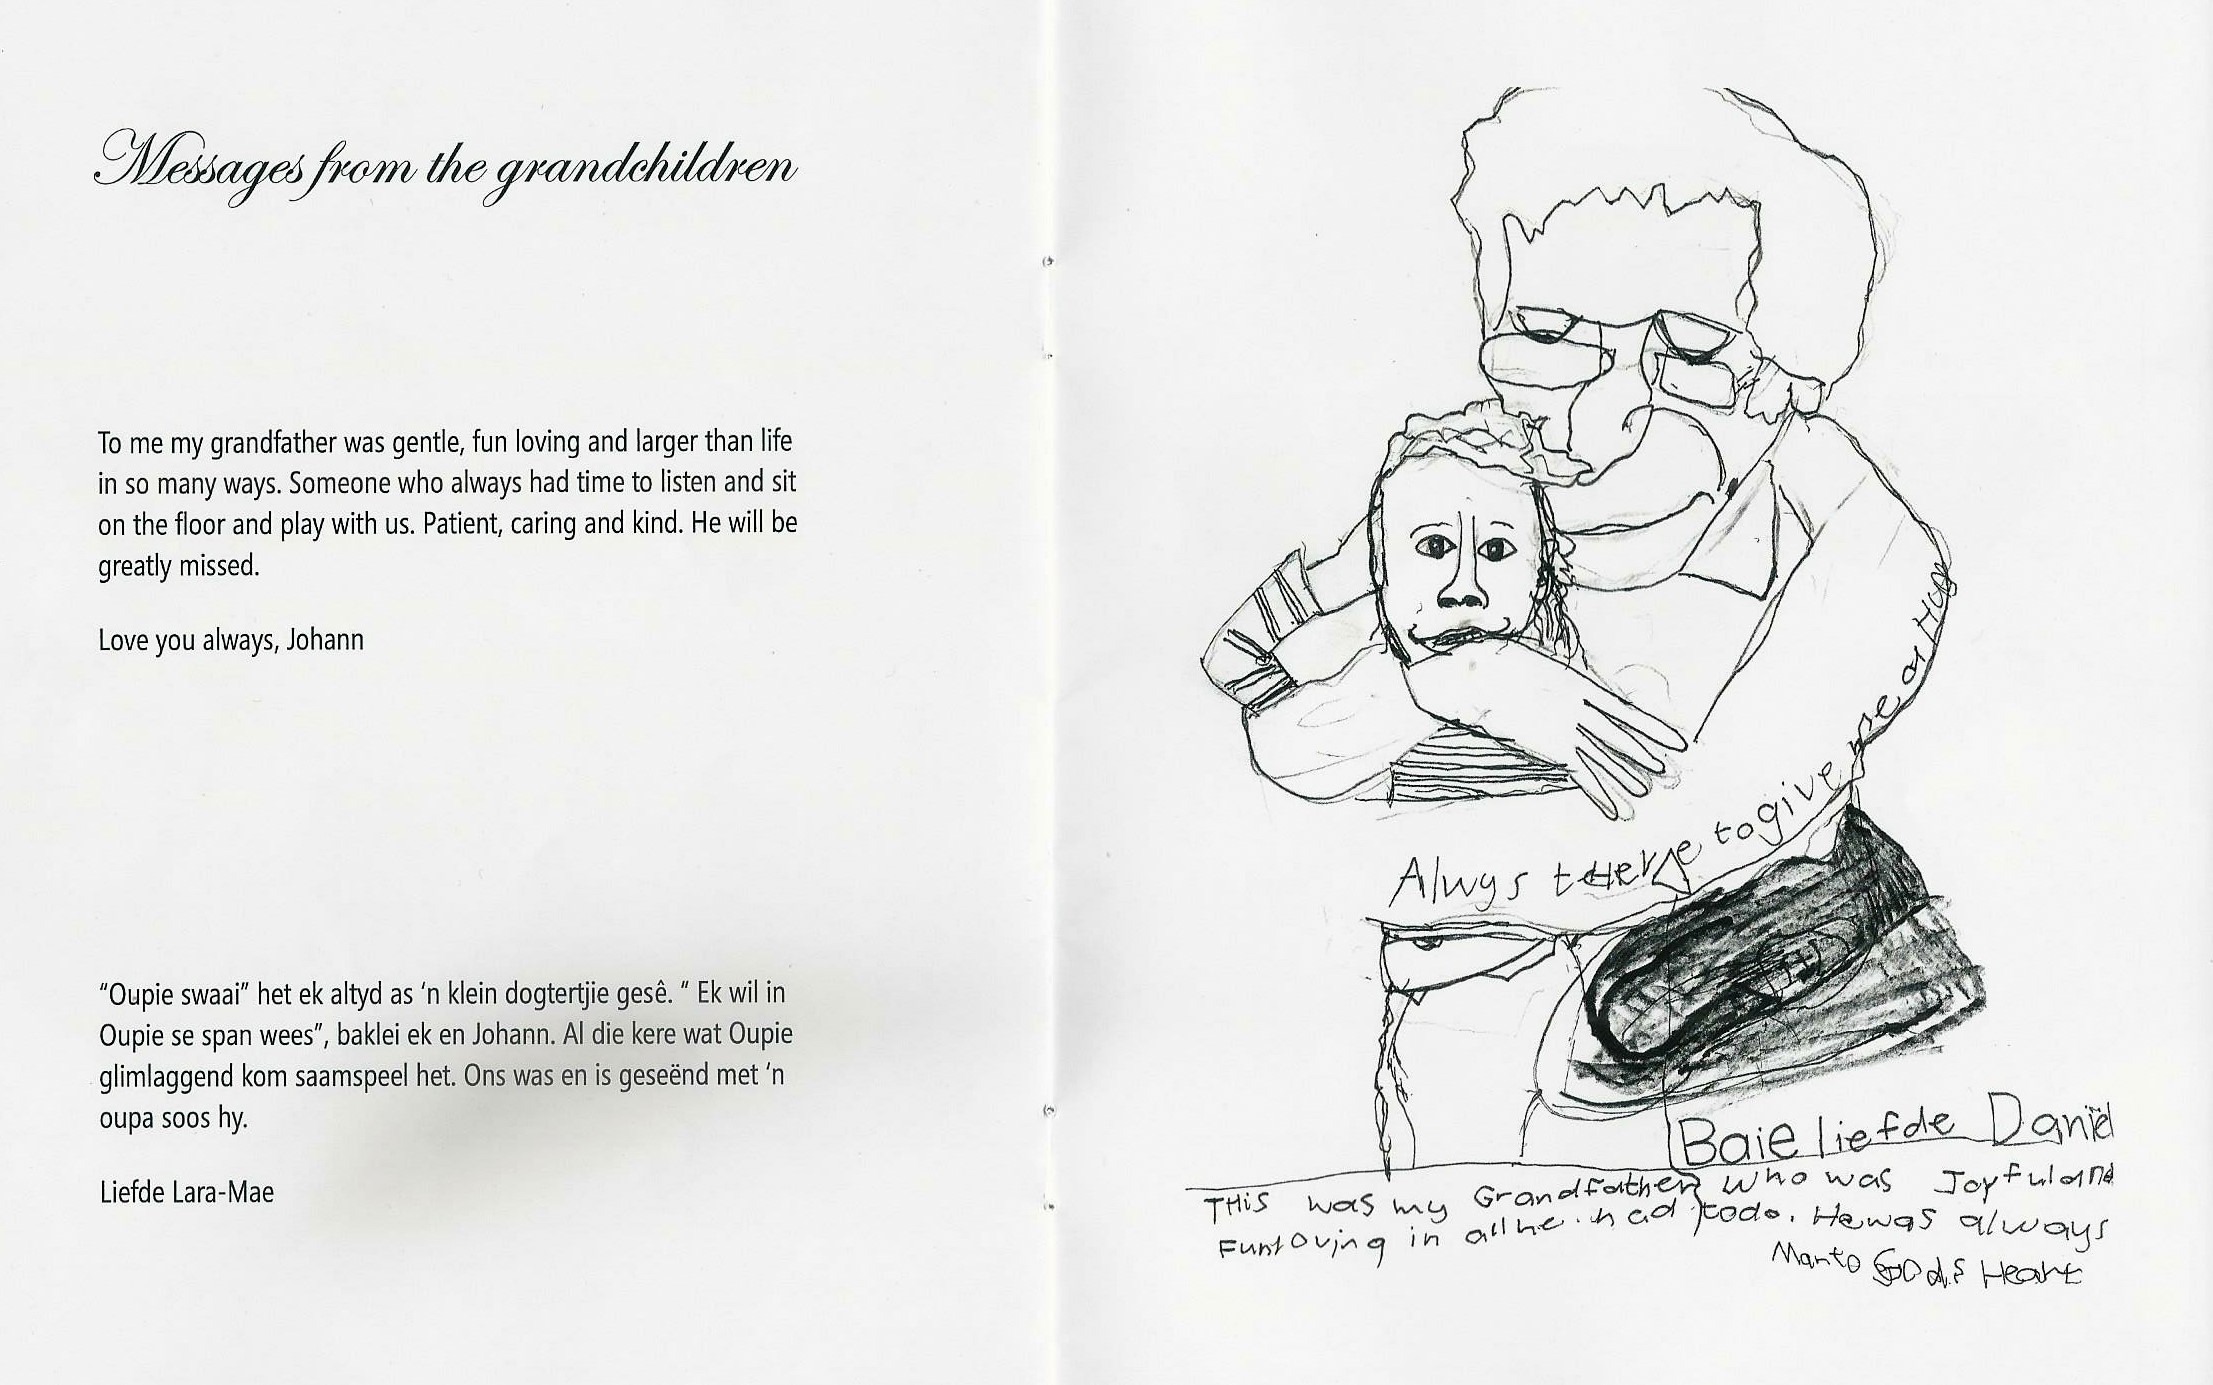 Messages from the grandchildren
To me my grandfather was gentle, fun loving and larger than life
in so many ways. Someone who always had time to listen and sit
on the floor and play with us. Patient, caring and kind. He will be
greatly missed.
Love you always, Johann
“Oupie swaai” het ek altyd as ‘n klein dogtertjie gesê. “ Ek wil in
Oupie se span wees”, baklei ek en Johann. Al die kere wat Oupie
glimlaggend kom saamspeel het. Ons was en is geseënd met ‘n
oupa soos hy.
Liefde Lara-Mae
Alwys there to give me a Hug
Baie liefde Daniël
THis was my Grandfather who was Joyful and
Funloving in all he had to do. He was always
Man to GOds Heart